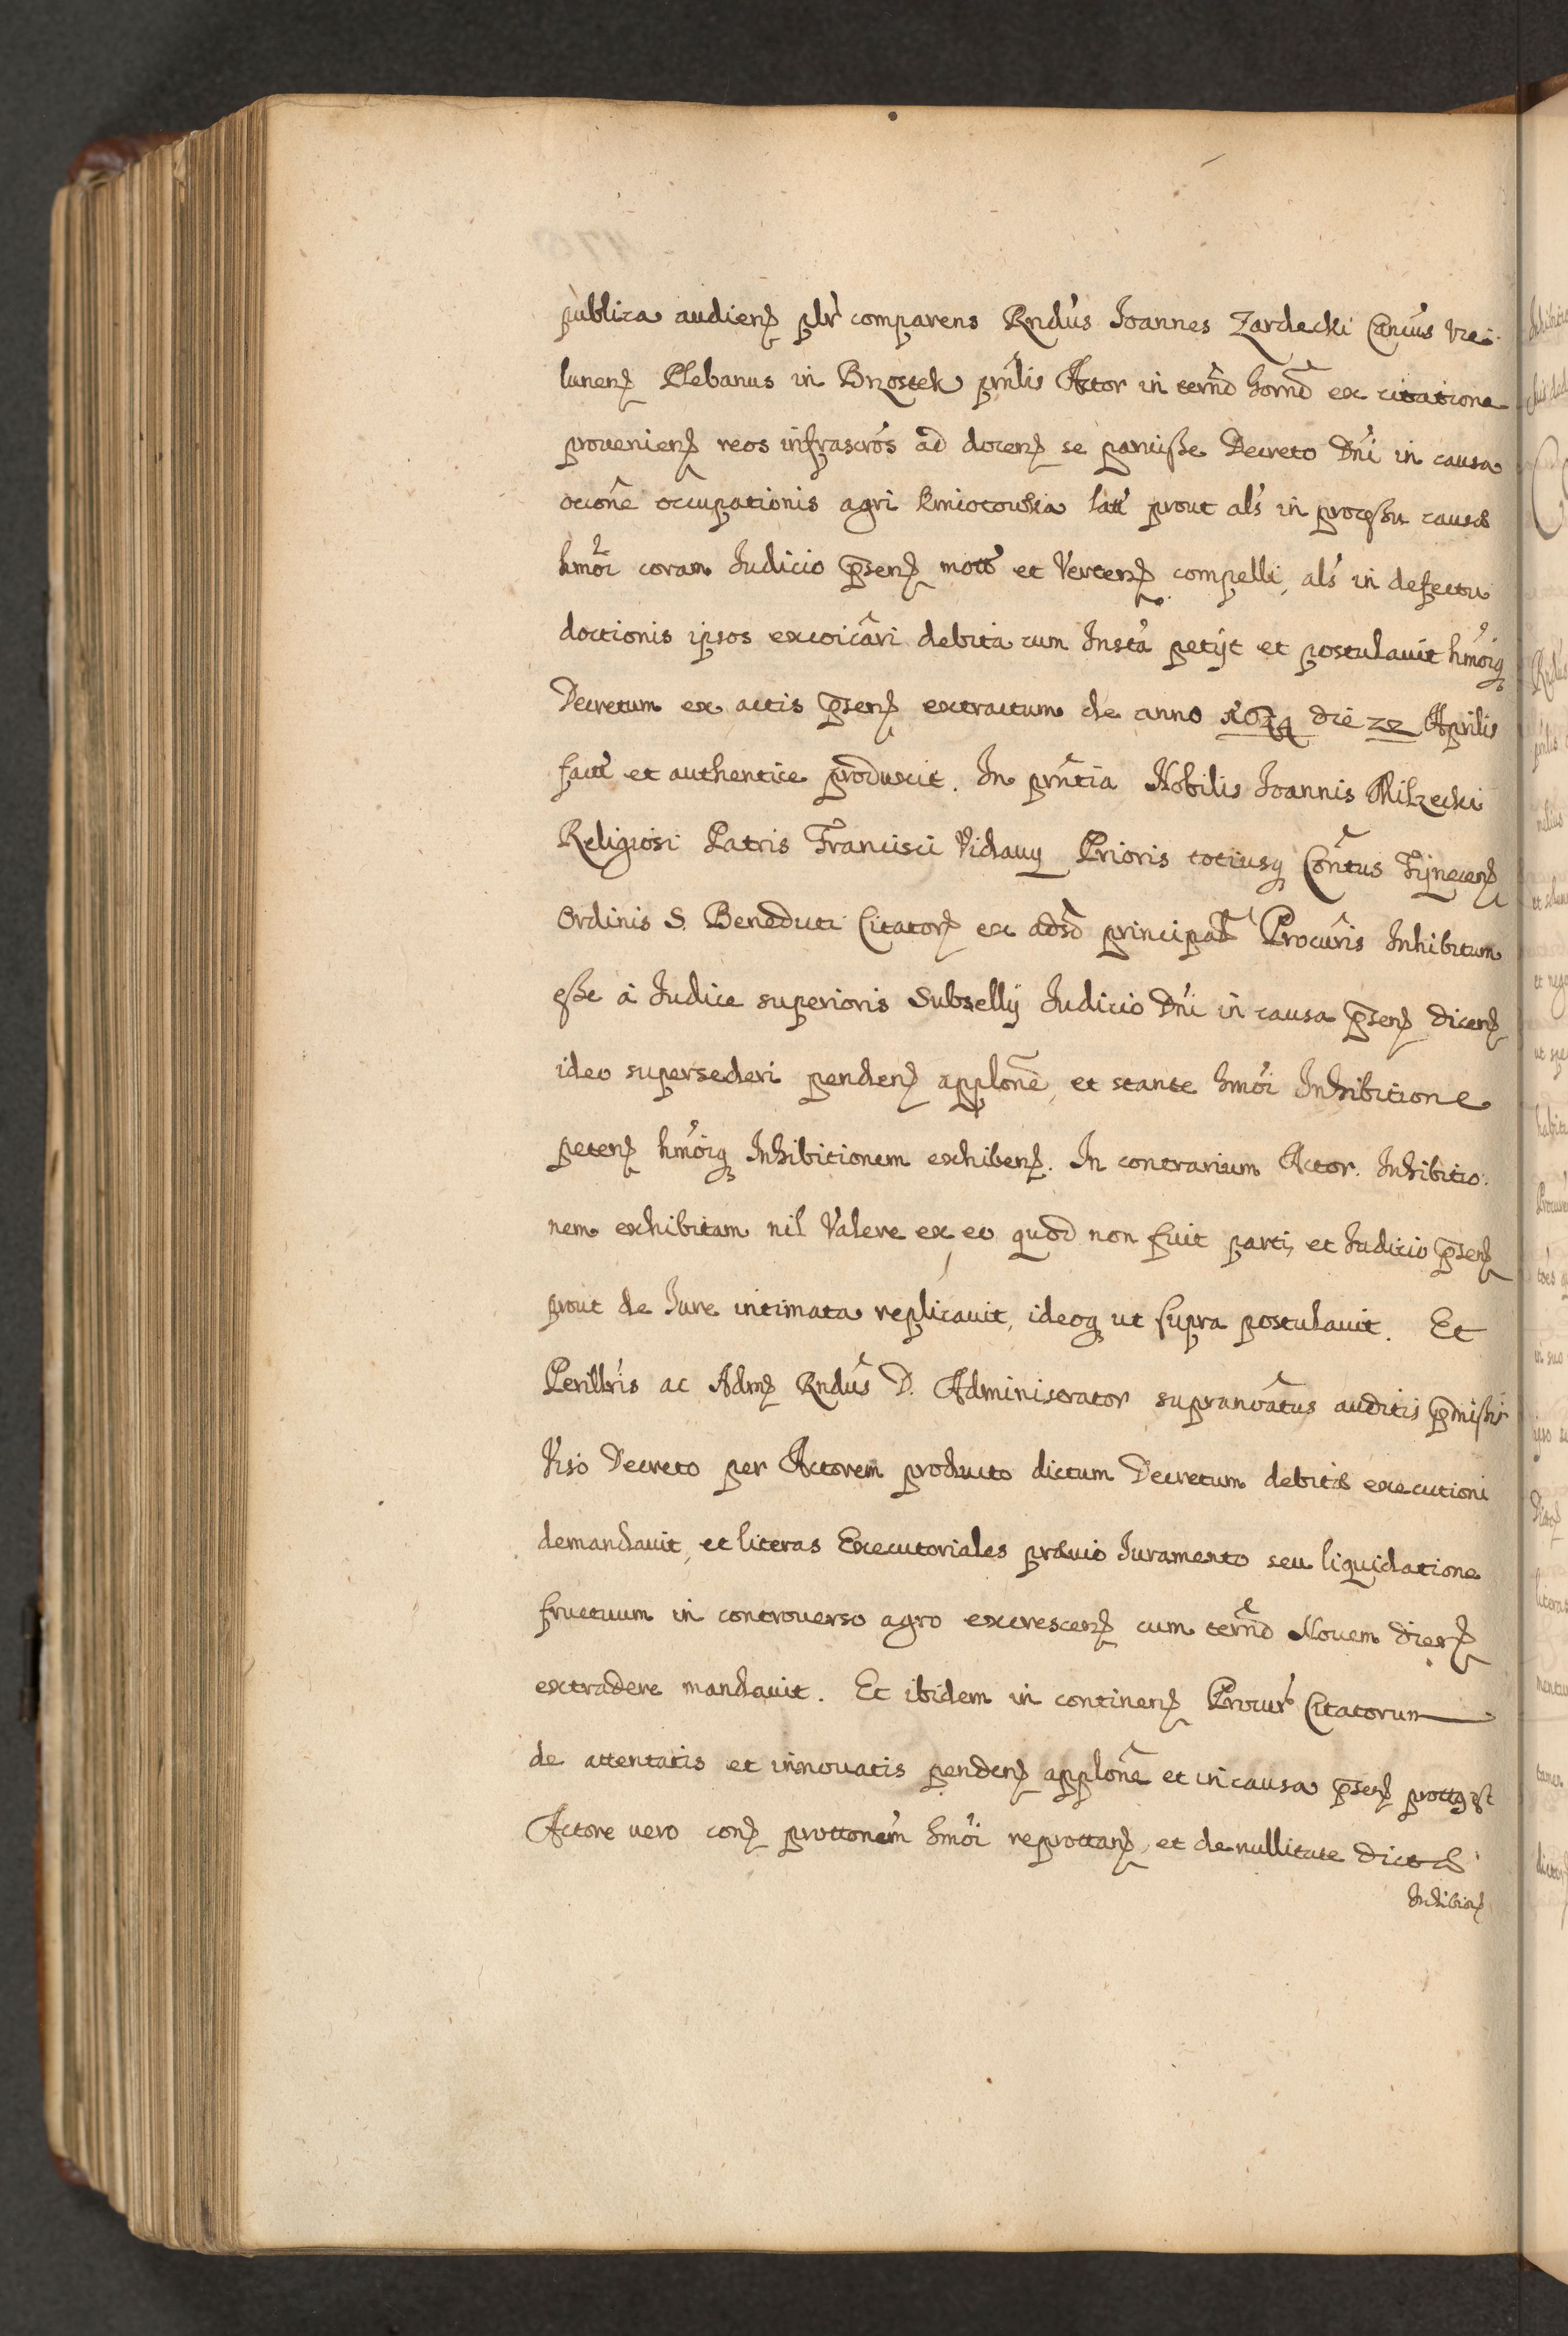 publica audien. plr comparens Rndus Joannes Zardecki Cancus Vie-
lunen. Plebanus in Brzostek prnlis Actor in termo hormo ex citatione
provenien. reos infrascros ad docen. se paruisse Decreto Dni in causa
occone occupationis agri kmiotowska latt prout als in processu causæ
hmoi coram Judicio psen. mottæ et Verten. compelli, als in defectu
doctionis ipsos excoicari debita cum Insta petijt et postulauit hmoiq
Decretum ex actis psen. extractum de anno die 22 Aprilis
fact et authentice produxit. In prntia Nobilis Joannis Milzecki
Religiosi Patris Francisci Prioris totiusq Conntus Tijnecen.
Ordinis S. Benedicti Citator. ex adso principal Procuris Inhibitum
esse à Judice superioris Subsellij Judicio Dni in causa psen. dicen.
ideo supersederi penden. applone, et stante hmoi Inhibitione
peten. hmoiq Inhibitionem exhiben. In contrarium Actor. Inhibitio-
nem exhibitam nil Valere ex eo quod non fuit parti, et Judicio psen.
prout de Jure intimata replicauit, ideoq ut supra postulauit. Et
Perillris ac Adm. Rndus D. Administrator supranoatus auditis pmissis
Viso Decreto per Actorem producto dictum Decretum debitæ executioni
demandauit, et literas Executoriales præuio Juramento seu liquidatione
fructuum in controuerso agro excrescen. cum termo Nouem dier.
extradere mandauit. Et ibidem in continen. Procur Citatorum
de attentatis et innouatis penden. applone et in causa psen. prottg est
Actore vero con. prottonem hmoi reprottan. et de nullitate dictæ
Inhibion.